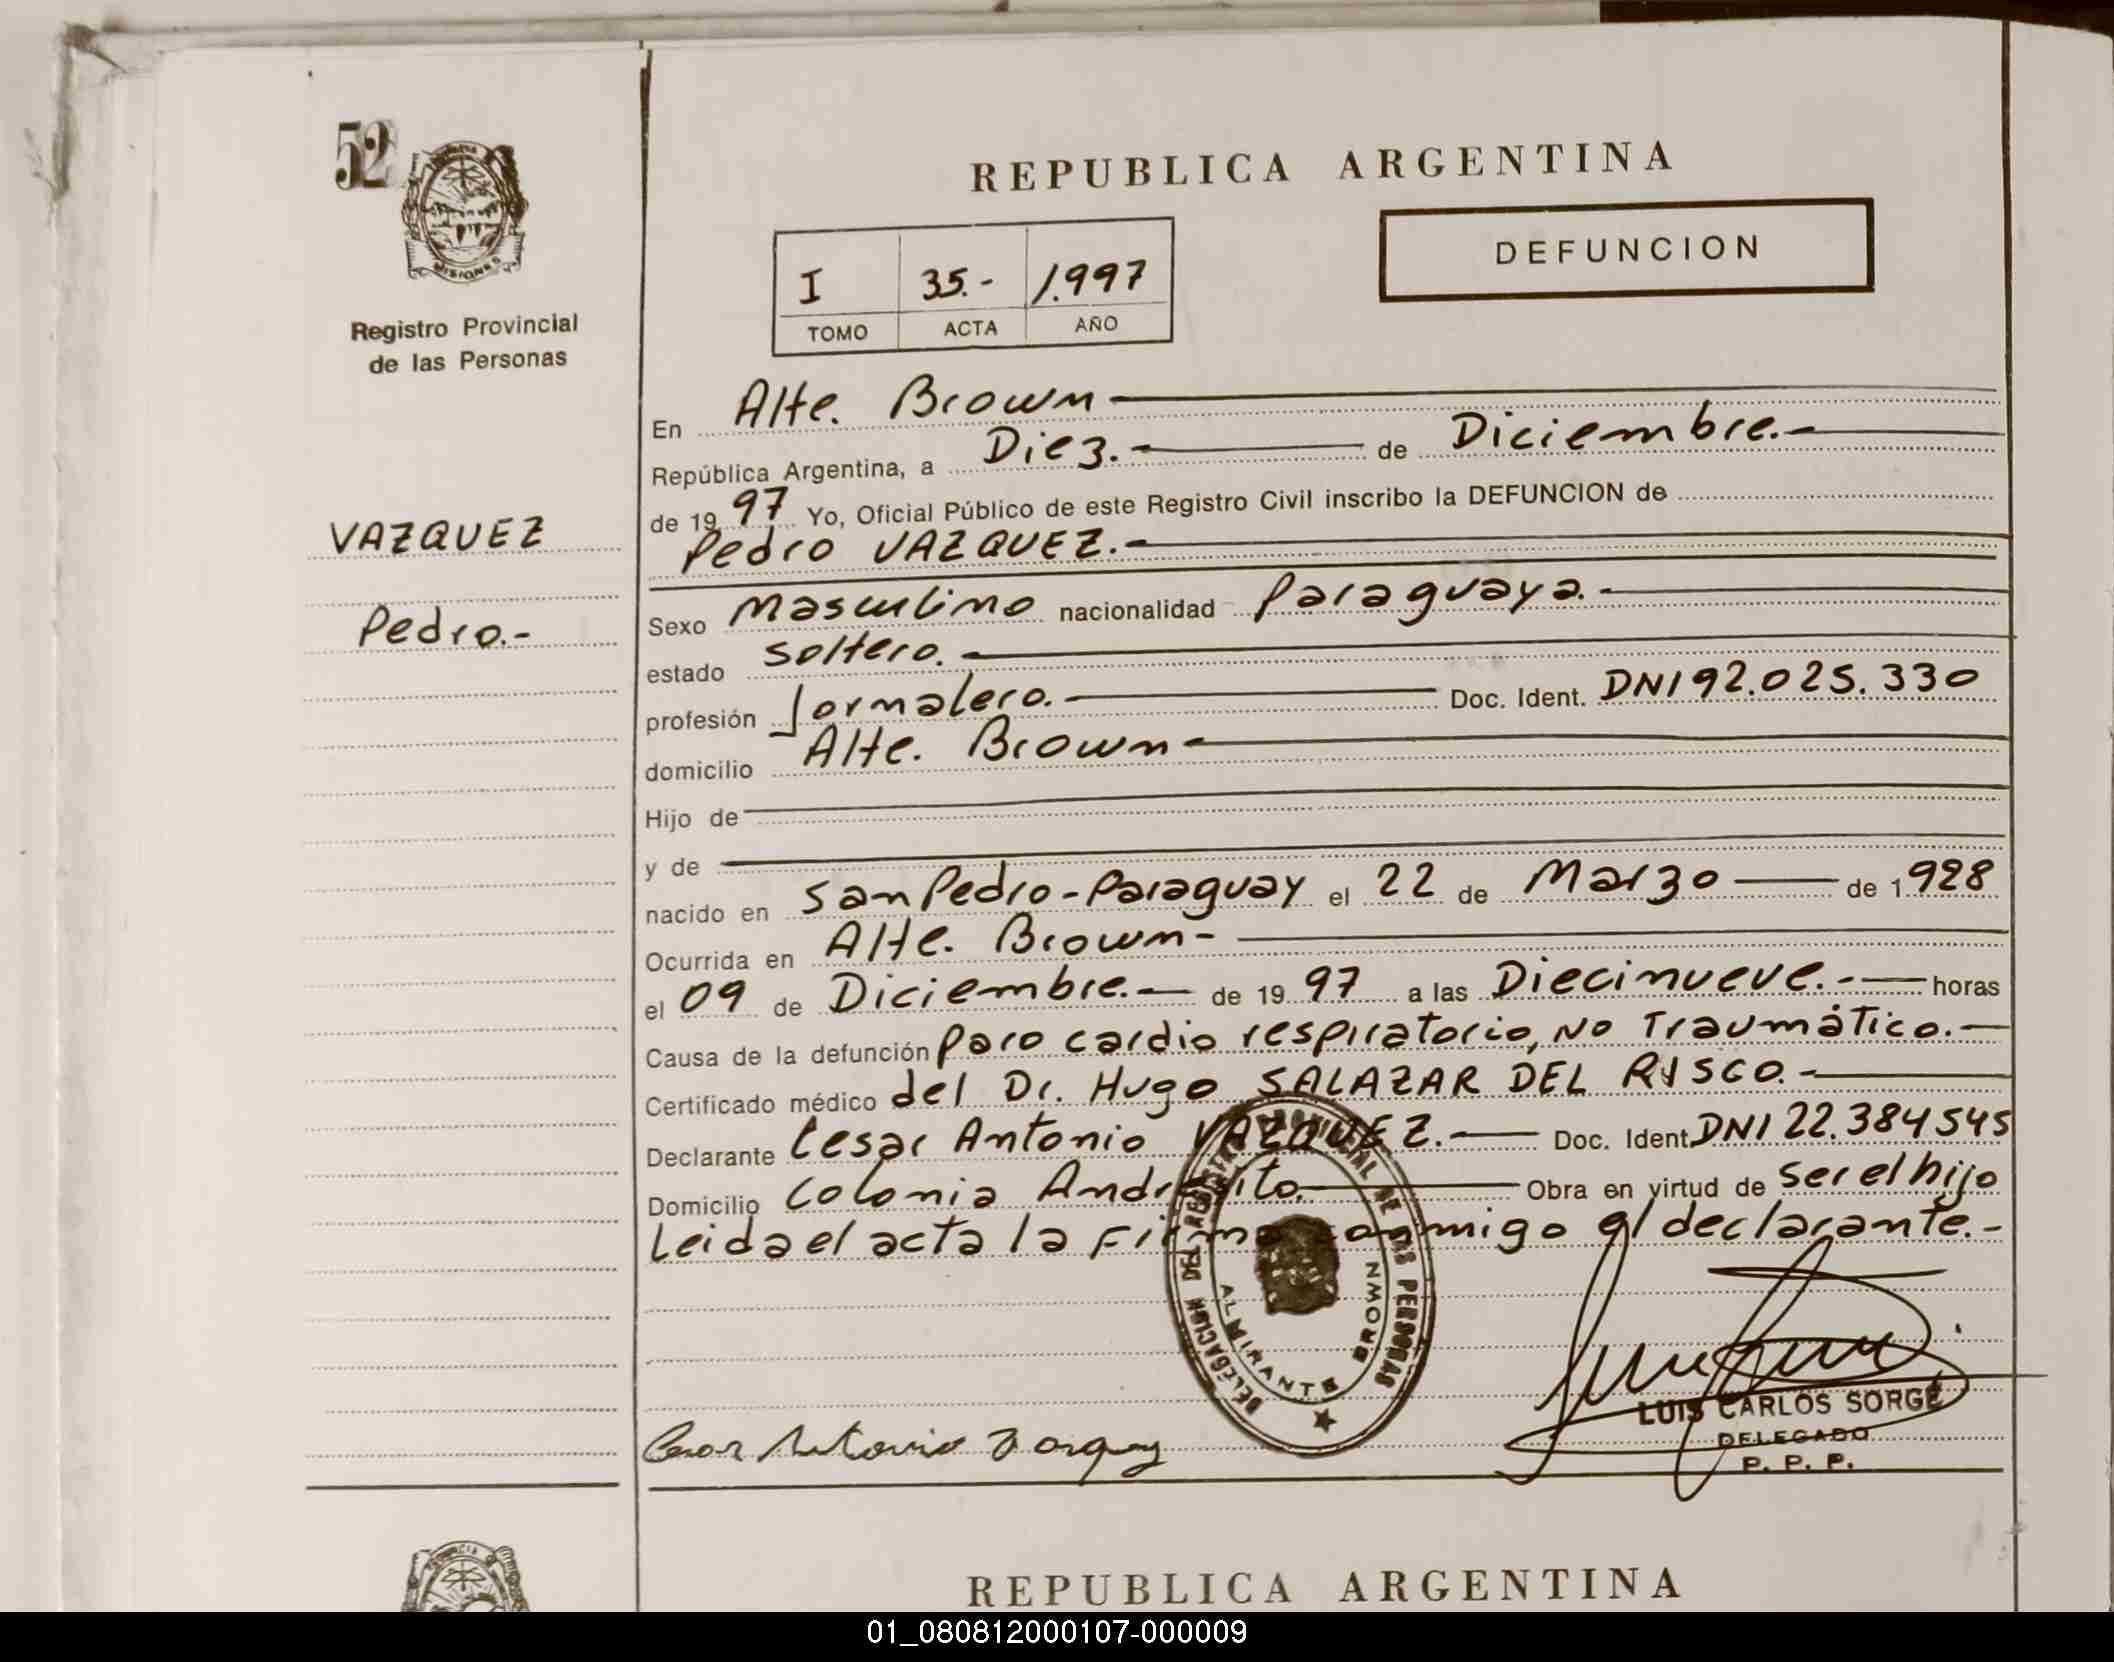 52
MISIONES
Registro Provincial
de las Personas
VAZQUEZ
Pedro.-
REPUBLICA ARGENTINA
DEFUNCION
I 35.- 1.997
TOMO ACTA AÑO
En Alte. Brown
República Argentina, a Diez.- de Diciembre.-
de 1997 Yo, Oficial Público de este Registro Civil inscribo la DEFUNCION de
Pedro VAZQUEZ.-
Sexo Masculino nacionalidad Paraguaya.-
estado soltero.
profesión Jornalero.- Doc. Ident. DNI 92.025.330
domicilio Alte. Brown
Hijo de
y de
nacido en San Pedro-Paraguay el 22 de Marzo de 1928
Ocurrida en Alte. Brown-
el 09 de Diciembre.- de 1997 a las Diecinueve.- horas
Causa de la defunción Paro cardio respiratorio, No Traumático.-
Certificado médico del Dr. Hugo SALAZAR DEL RISCO.-
Declarante Cesar Antonio VAZQUEZ.- Doc. Ident. DNI 22.384545
Domicilio Colonia Andresito. Obra en virtud de ser el hijo
Leida el acta la Firma conmigo el declarante.-
DELEGACION DEL REGISTRO PROVINCIAL DE LAS PERSONAS
ALMIRANTE BROWN
Cesar Antonio Vazquez
LUIS CARLOS SORGE
DELEGADO
P. P. P.
PROVINCIA
REPUBLICA ARGENTINA
01_080812000107-000009